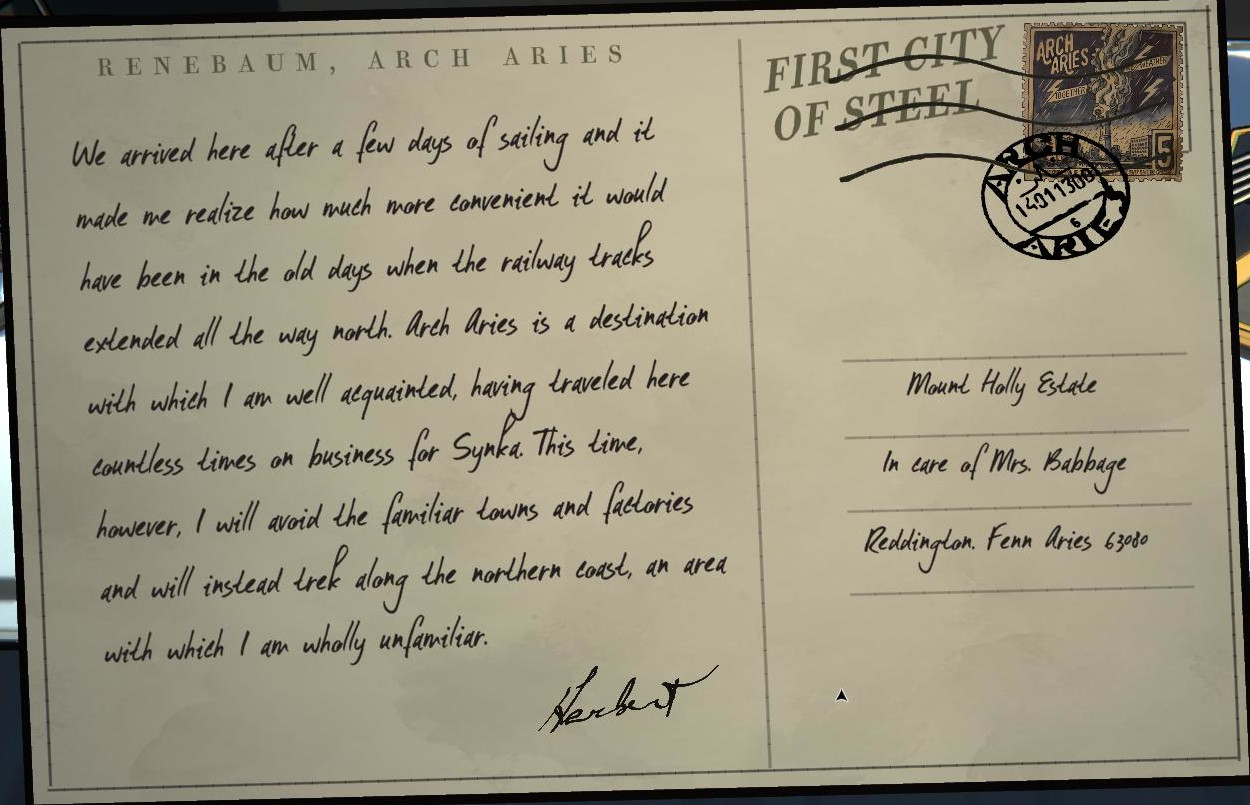 RENEBAUM, ARCH ARIES
We arrived here after a few days of sailing and it
made me realize how much more convenient it would
have been in the old days when the railway tracks
extended all the way north. Arch Aries is a destination
with which I am well acquainted, having traveled here
countless times on business for Synka. This time,
however, I will avoid the familiar towns and factories
and will instead trek along the northern coast, an area
with which I am wholly unfamiliar.
Herbert
FIRST CITY
OF STEEL
ARCH
ARIES
TOGETHER
5
ARCH
6
ARIES
Mount Holly Estate
In care of Mrs. Babbage
Reddington. Fenn Aries 63080